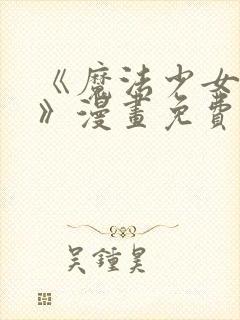 《魔法少女
》漫畫免費
吴鍾昊